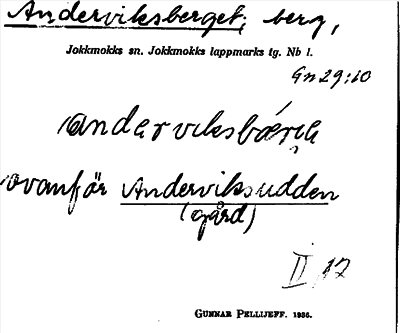 Anderviksberget, berg,
Jokkmokks sn. Jokkmokks lappmarks tg. Nb l.
Gn 29:10
ovanför Anderviksudden
(gård)
II 17
GUNNAR PELLIJEFF. 1936.